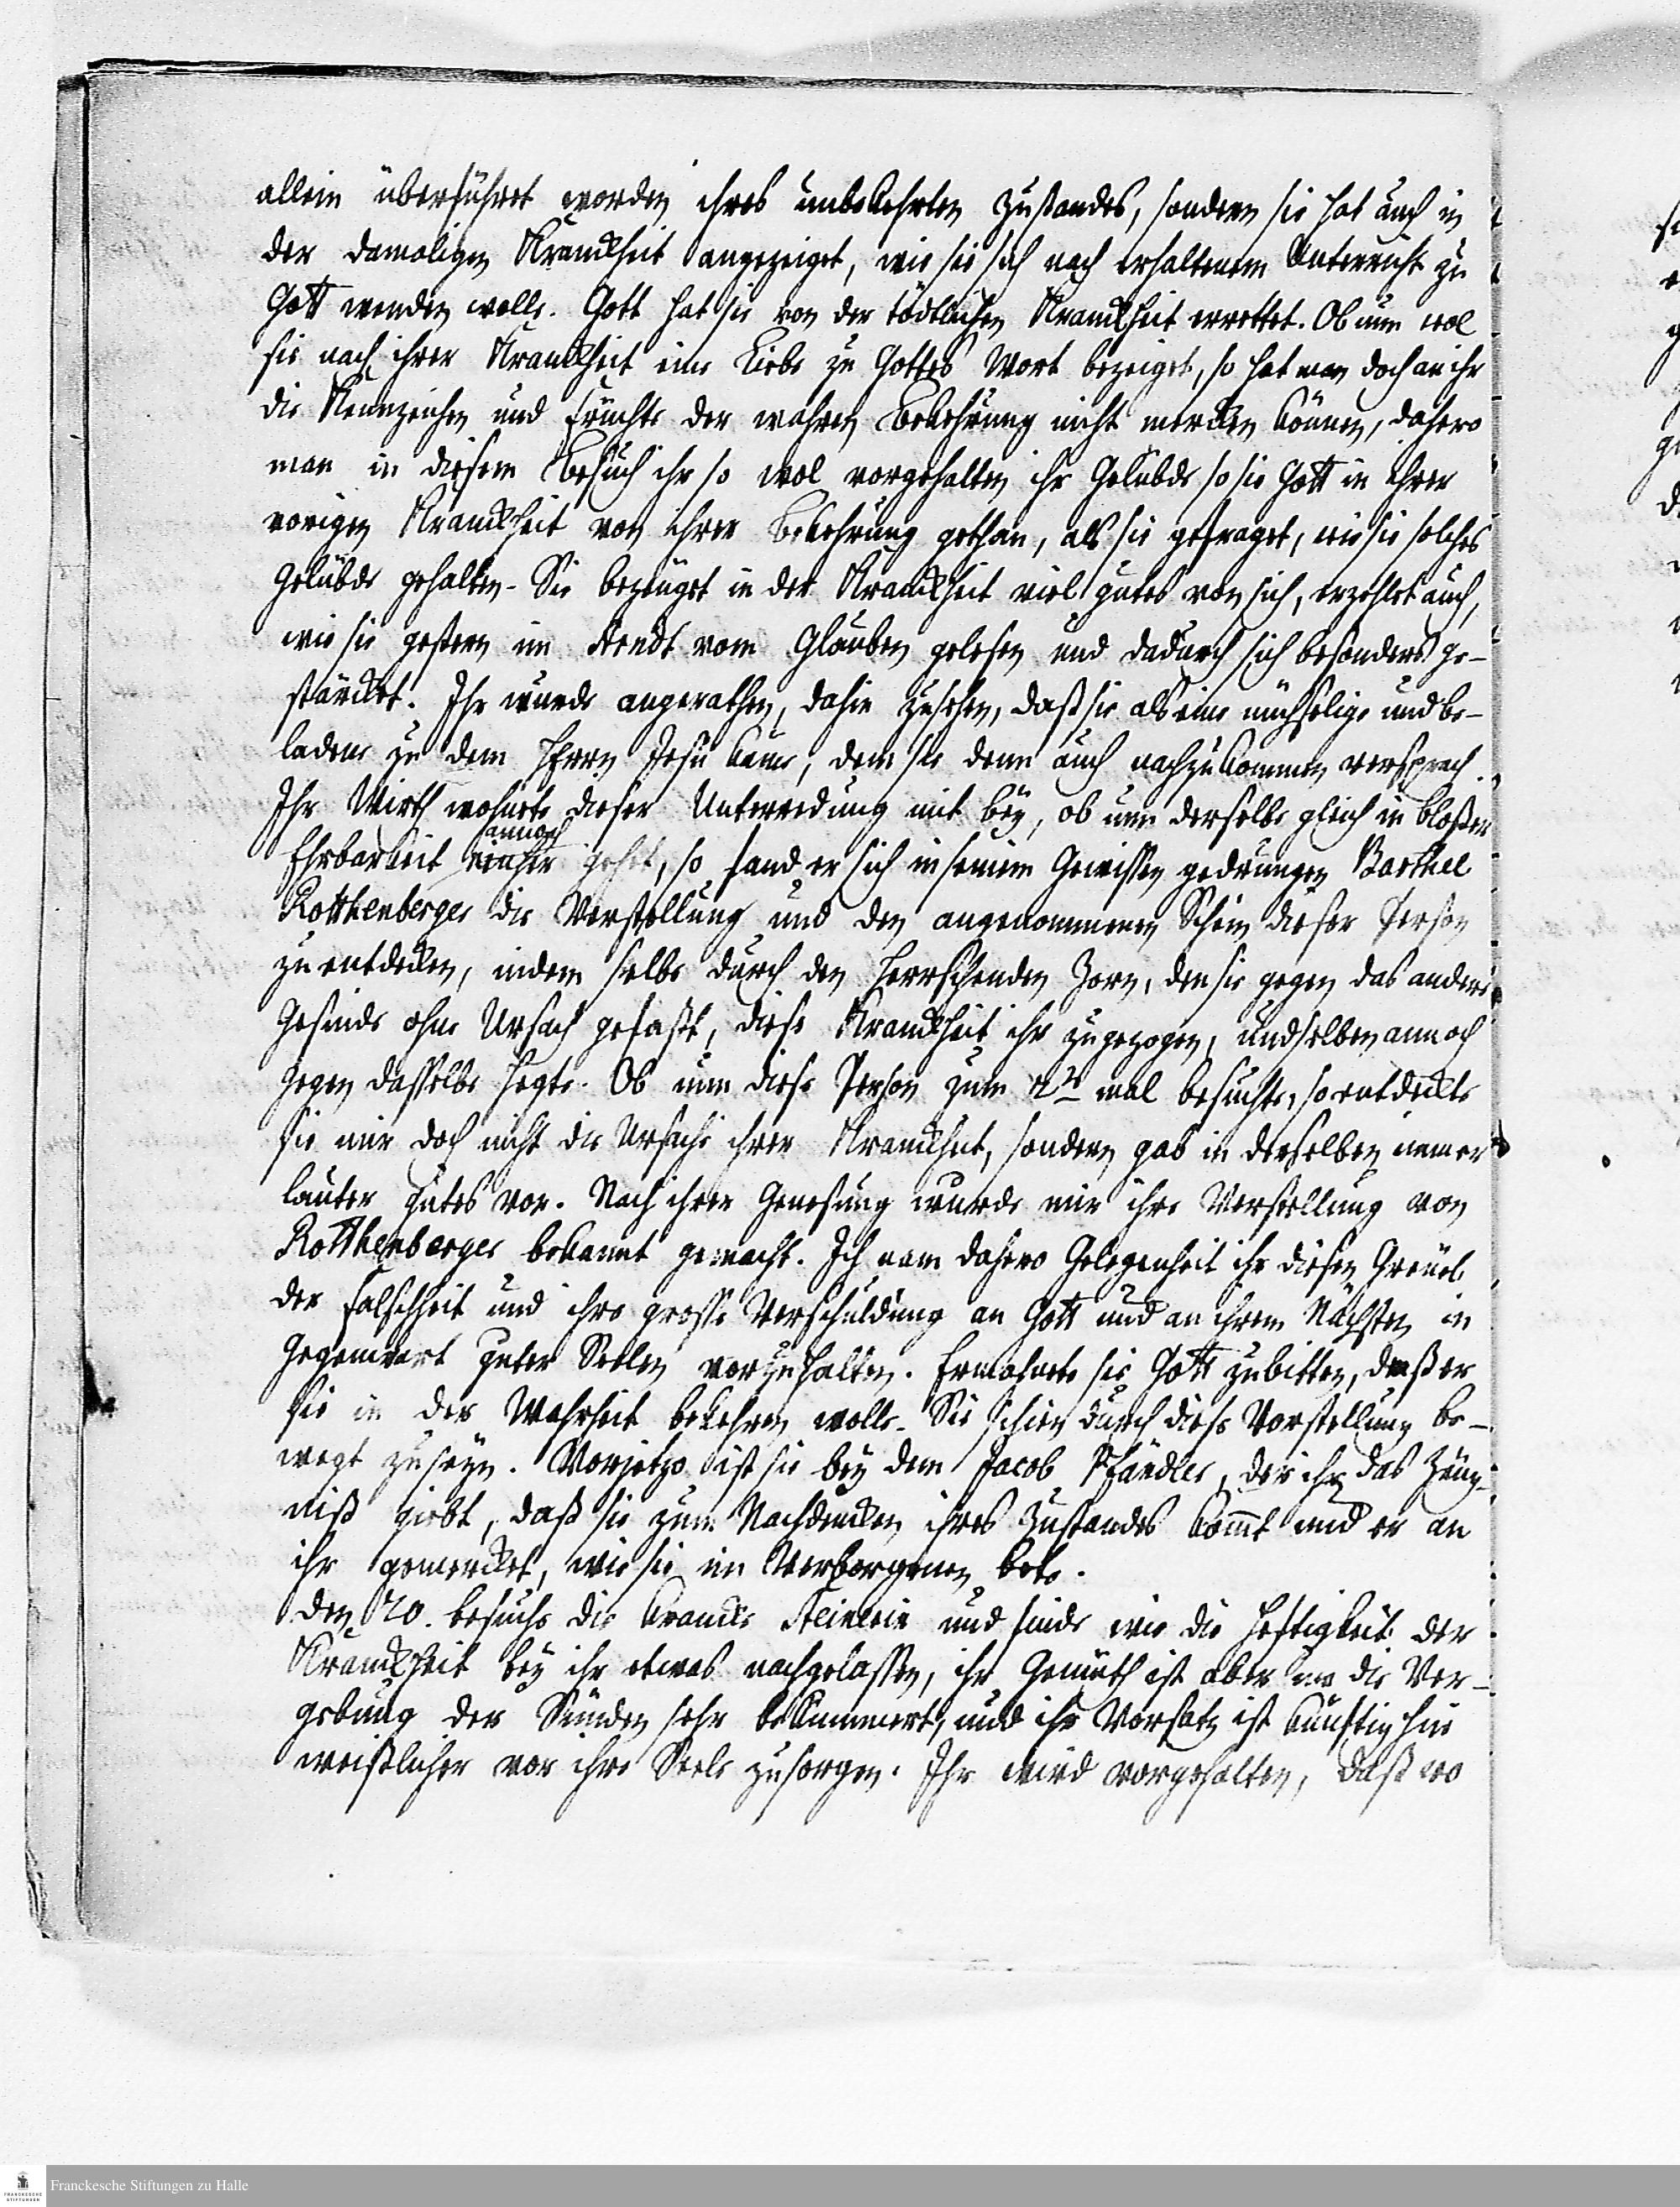 allein überführet worden ihres unbekehrten Zustandes, sondern sie hat auch in
der damaligen Kranckheit angezeiget, wie sie sich nach erhaltenem Unterricht zu
Gott wenden wolle. Gott hat sie von der tödtlichen Kranckheit errettet. Ob nun wol
sie nach ihrer Kranckheit eine Liebe zu Gottes Wort bezeiget, so hat man doch an ihr
die Kennzeichen und Früchte der wahren Bekehrung nicht mercken können, dahero
man in diesem Besuch ihr so wol vorgehalten ihr Gelübde so sie Gott in ihrer
vorigen Kranckheit von ihrer Bekehrung gethan, als sie gefraget, wie sie solches
Gelübde gehalten. Sie bezeuget in der Kranckheit viel gutes von sich, erzehlet auch,
wie sie gestern im Arndt vom Glauben gelesen und dadurch sich besonders ge-
stärcket. Ihr wurde angerathen, dahin zusehen, daß sie als eine mühselige und be-
ladene zu dem Herrn Jesu käme, dem sie denn auch nachzukommen versprach.
Ihr Wirth wohnete dieser Unterredung mit bey, ob nun derselbe gleich in bloßer
annoch
Ehrbarkeit einher gehet, so fand er sich in seinem Gewissen gedrungen Barthel
Rotthenberger die Verstellung und den angenommenen Schein dieser Person
zu entdecken, indem selbe durch den herrschenden Zorn, den sie gegen das andere
Gesinde ohne Ursach gefaßt, diese Kranckheit ihr zugezogen, und selben annoch
gegen dasselbe hegte. Ob nun diese Person zum mal besuchte, so entdeckte
sie mir doch nicht die Ursache ihrer Kranckheit, sondern gab in derselben immer
lauter gutes vor. Nach ihrer Genesung wurde mir ihre Verstellung von
Rotthenberger bekannt gemacht. Ich nam dahero Gelegenheit ihr diesen Greuel
der Falschheit und ihre grosse Verschuldung an Gott und an ihrem Nächsten in
Gegenwart guter Seelen vorzuhalten. Ermahnete sie Gott zubitten, daß er
sie in der Wahrheit bekehren wolle. Sie schien durch diese Vorstellung be-
wegt zuseyn. Vorjetzo ist sie bey dem Jacob Pfändler, der ihr das Zeug-
niß giebt, daß sie zum Nachdencken ihres Zustandes komt und er an
ihr gemercket, wie sie im Verborgenen bete.
den 20. besuche die krancke und finde wie die Heftigkeit der
Kranckheit bey ihr etwas nachgelassen, ihr Gemüth ist aber um die Ver-
gebung der Sünden sehr bekümmert, und ihr Vorsatz ist künftig hin
weißlicher vor ihre Seele zusorgen. Ihr wird vorgehalten, daß wo
Franckesche Stiftungen zu Halle